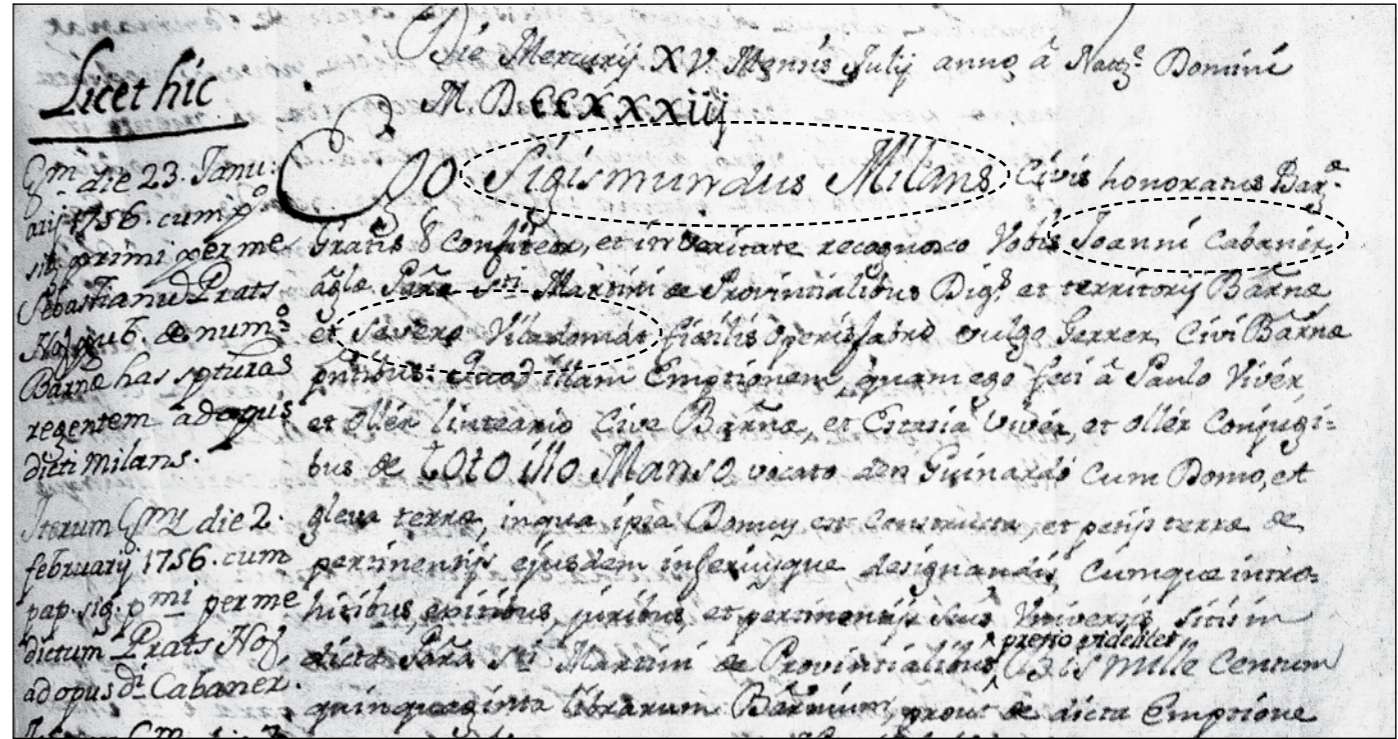 Die Mercurij XV. Mensis Julij anno â Natte Domini
M.D.CCXXXXiij
Licet hic
Gmâ die 23. Janu:
arij 1756. cum ppo
sig. primi per me
Sebastianũ Prats
Not. pub. de numo
Barnæ has scpturas
regentem ad opus
dicti Milans.
Iterum Gmy die 2.
februarij 1756. cum
pap. sig. pmi per me
dictum Prats Not,
ad opus di Cabaner.
Ego Sigismundus Milans Civis honoratus Baræ
Gratis & Confiteor, et in Veritate recognosco Vobis Joanni Cabanér,
aglæ Parã Sti Martini de Provintialibus Diogs et territorij Barnæ
et Severo Viladomár fictilis operis fabro vulgo Gerrer, Civi Barnæ
pntibus. Quod illam Emptionem, quam ego feci â Paulo Vivér,
et ollér linteario Cive Barnæ, et Estasia Vivér, et ollér Conjugi=
bus de toto illo Manso vocato den Guinardó cum Domo, et
gleva terræ, in qua ipsa Domus est constructa, et petijs terræ de
pertinentijs ejusdem inferiusque designandis, cumque intro=
hitibus, exitibus, juribus, et pertinentijs suis Universis, sitis in
dicta Parã Sti Martini de Provintialibus, pretio videlicet Bis mille Centum
quinquaginta librarum Barnium, prout de dicta Emptione